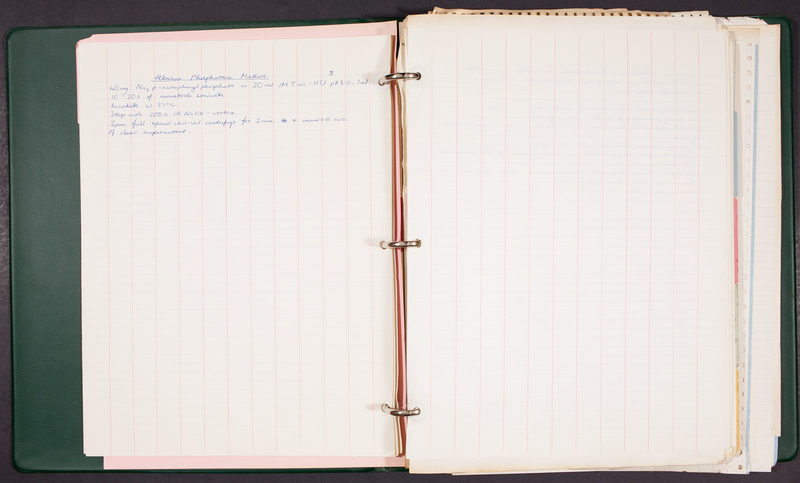 Alkaline Phosphatase Method.
40mg Na₂ p-nitrophenyl phosphate in 20 ml 1M Tris-HCl pH 8.0. 1ml
10-20λ of nematode sonicate
Incubate @ 37°C
Stop with 200λ 1N NaOH - vortex
Spin full speed clinical centrifuge for 2min + read OD
of clear supernatant.